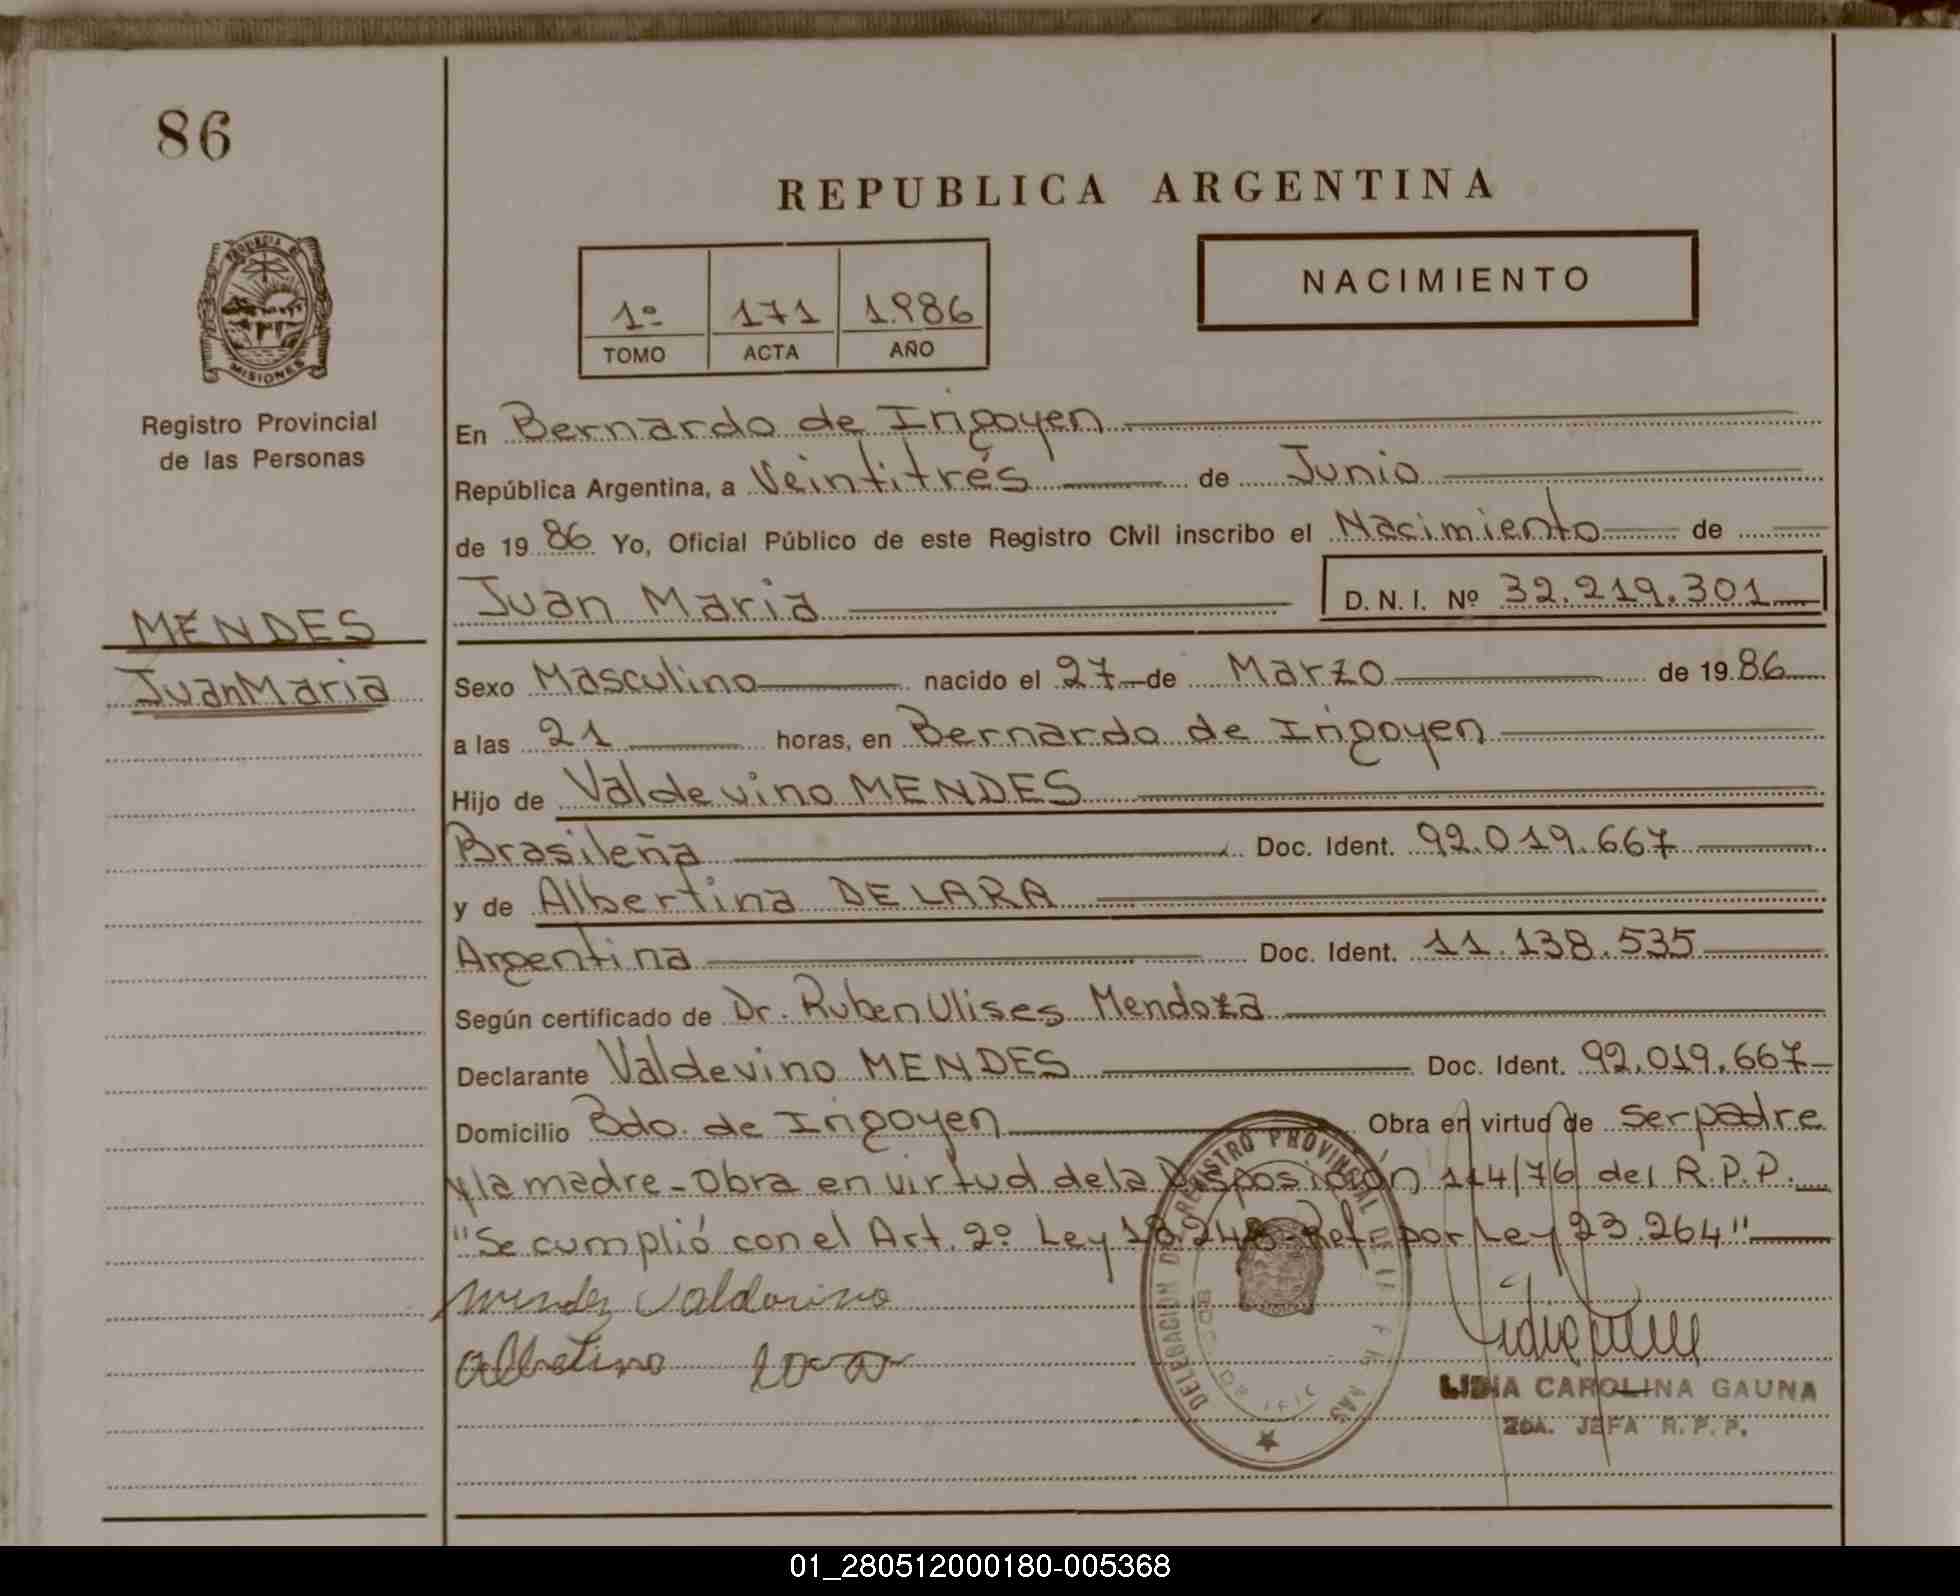 86
REPUBLICA ARGENTINA
PROVINCIA DE
MISIONES
Registro Provincial
de las Personas
1º 171 1986
TOMO ACTA AÑO
NACIMIENTO
En Bernardo de Irigoyen
República Argentina, a Veintitrés de Junio
de 1986 Yo, Oficial Público de este Registro Civil inscribo el Nacimiento de
Juan Maria D. N. I. Nº 32.219.301
MENDES
Juan Maria
Sexo Masculino nacido el 27 de Marzo de 1986
a las 21 horas, en Bernardo de Irigoyen
Hijo de Valdevino MENDES
Brasileña Doc. Ident. 92.019.667
y de Albertina DE LARA
Argentina Doc. Ident. 11.138.535
Según certificado de Dr. Ruben Ulises Mendoza
Declarante Valdevino MENDES Doc. Ident. 92.019.667
Domicilio Bdo. de Irigoyen Obra en virtud de ser padre
y la madre - Obra en virtud de la Disposición 114/76 del R.P.P.
"Se cumplió con el Art. 2º Ley 18.248 - Ref. por Ley 23.264"
Mendes Valdovino
Albertina Lara
DELEGACION DEL REGISTRO PROVINCIAL DE LAS PERSONAS
LIDIA CAROLINA GAUNA
2DA. JEFA R. P. P.
01_280512000180-005368